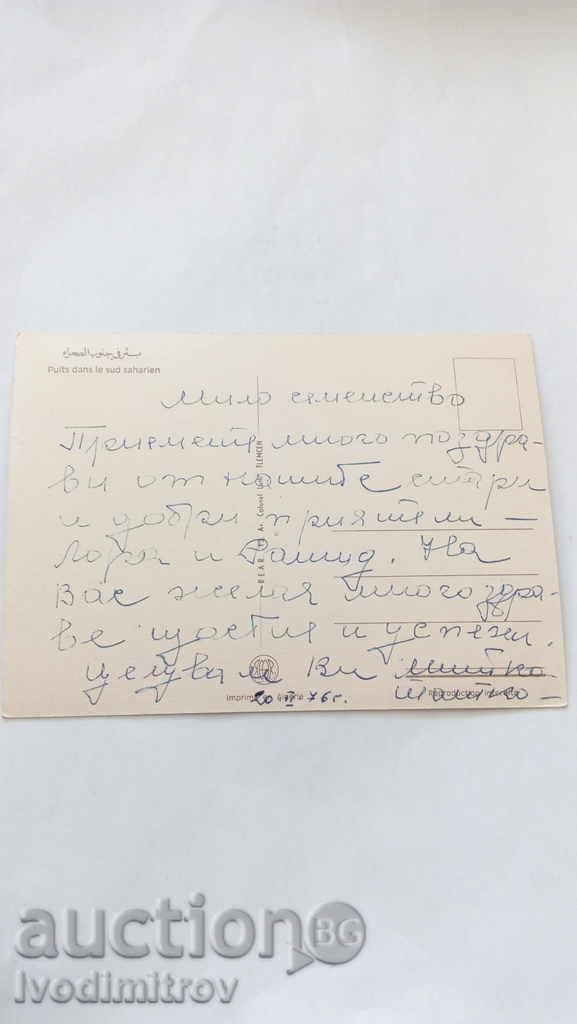 بئر في جنوب الصحراء
Puits dans le sud saharien
Мило семейство
Приемете много поздра-
ви от нашите стари
и добри приятели -
и Рашид. На
Вас желая много здра-
ве щастие и успехи.
Целувам Ви Митко
20 II 76 г.
TLEMCEN
Reproduction interdite
auction BG
Ivodimitrov